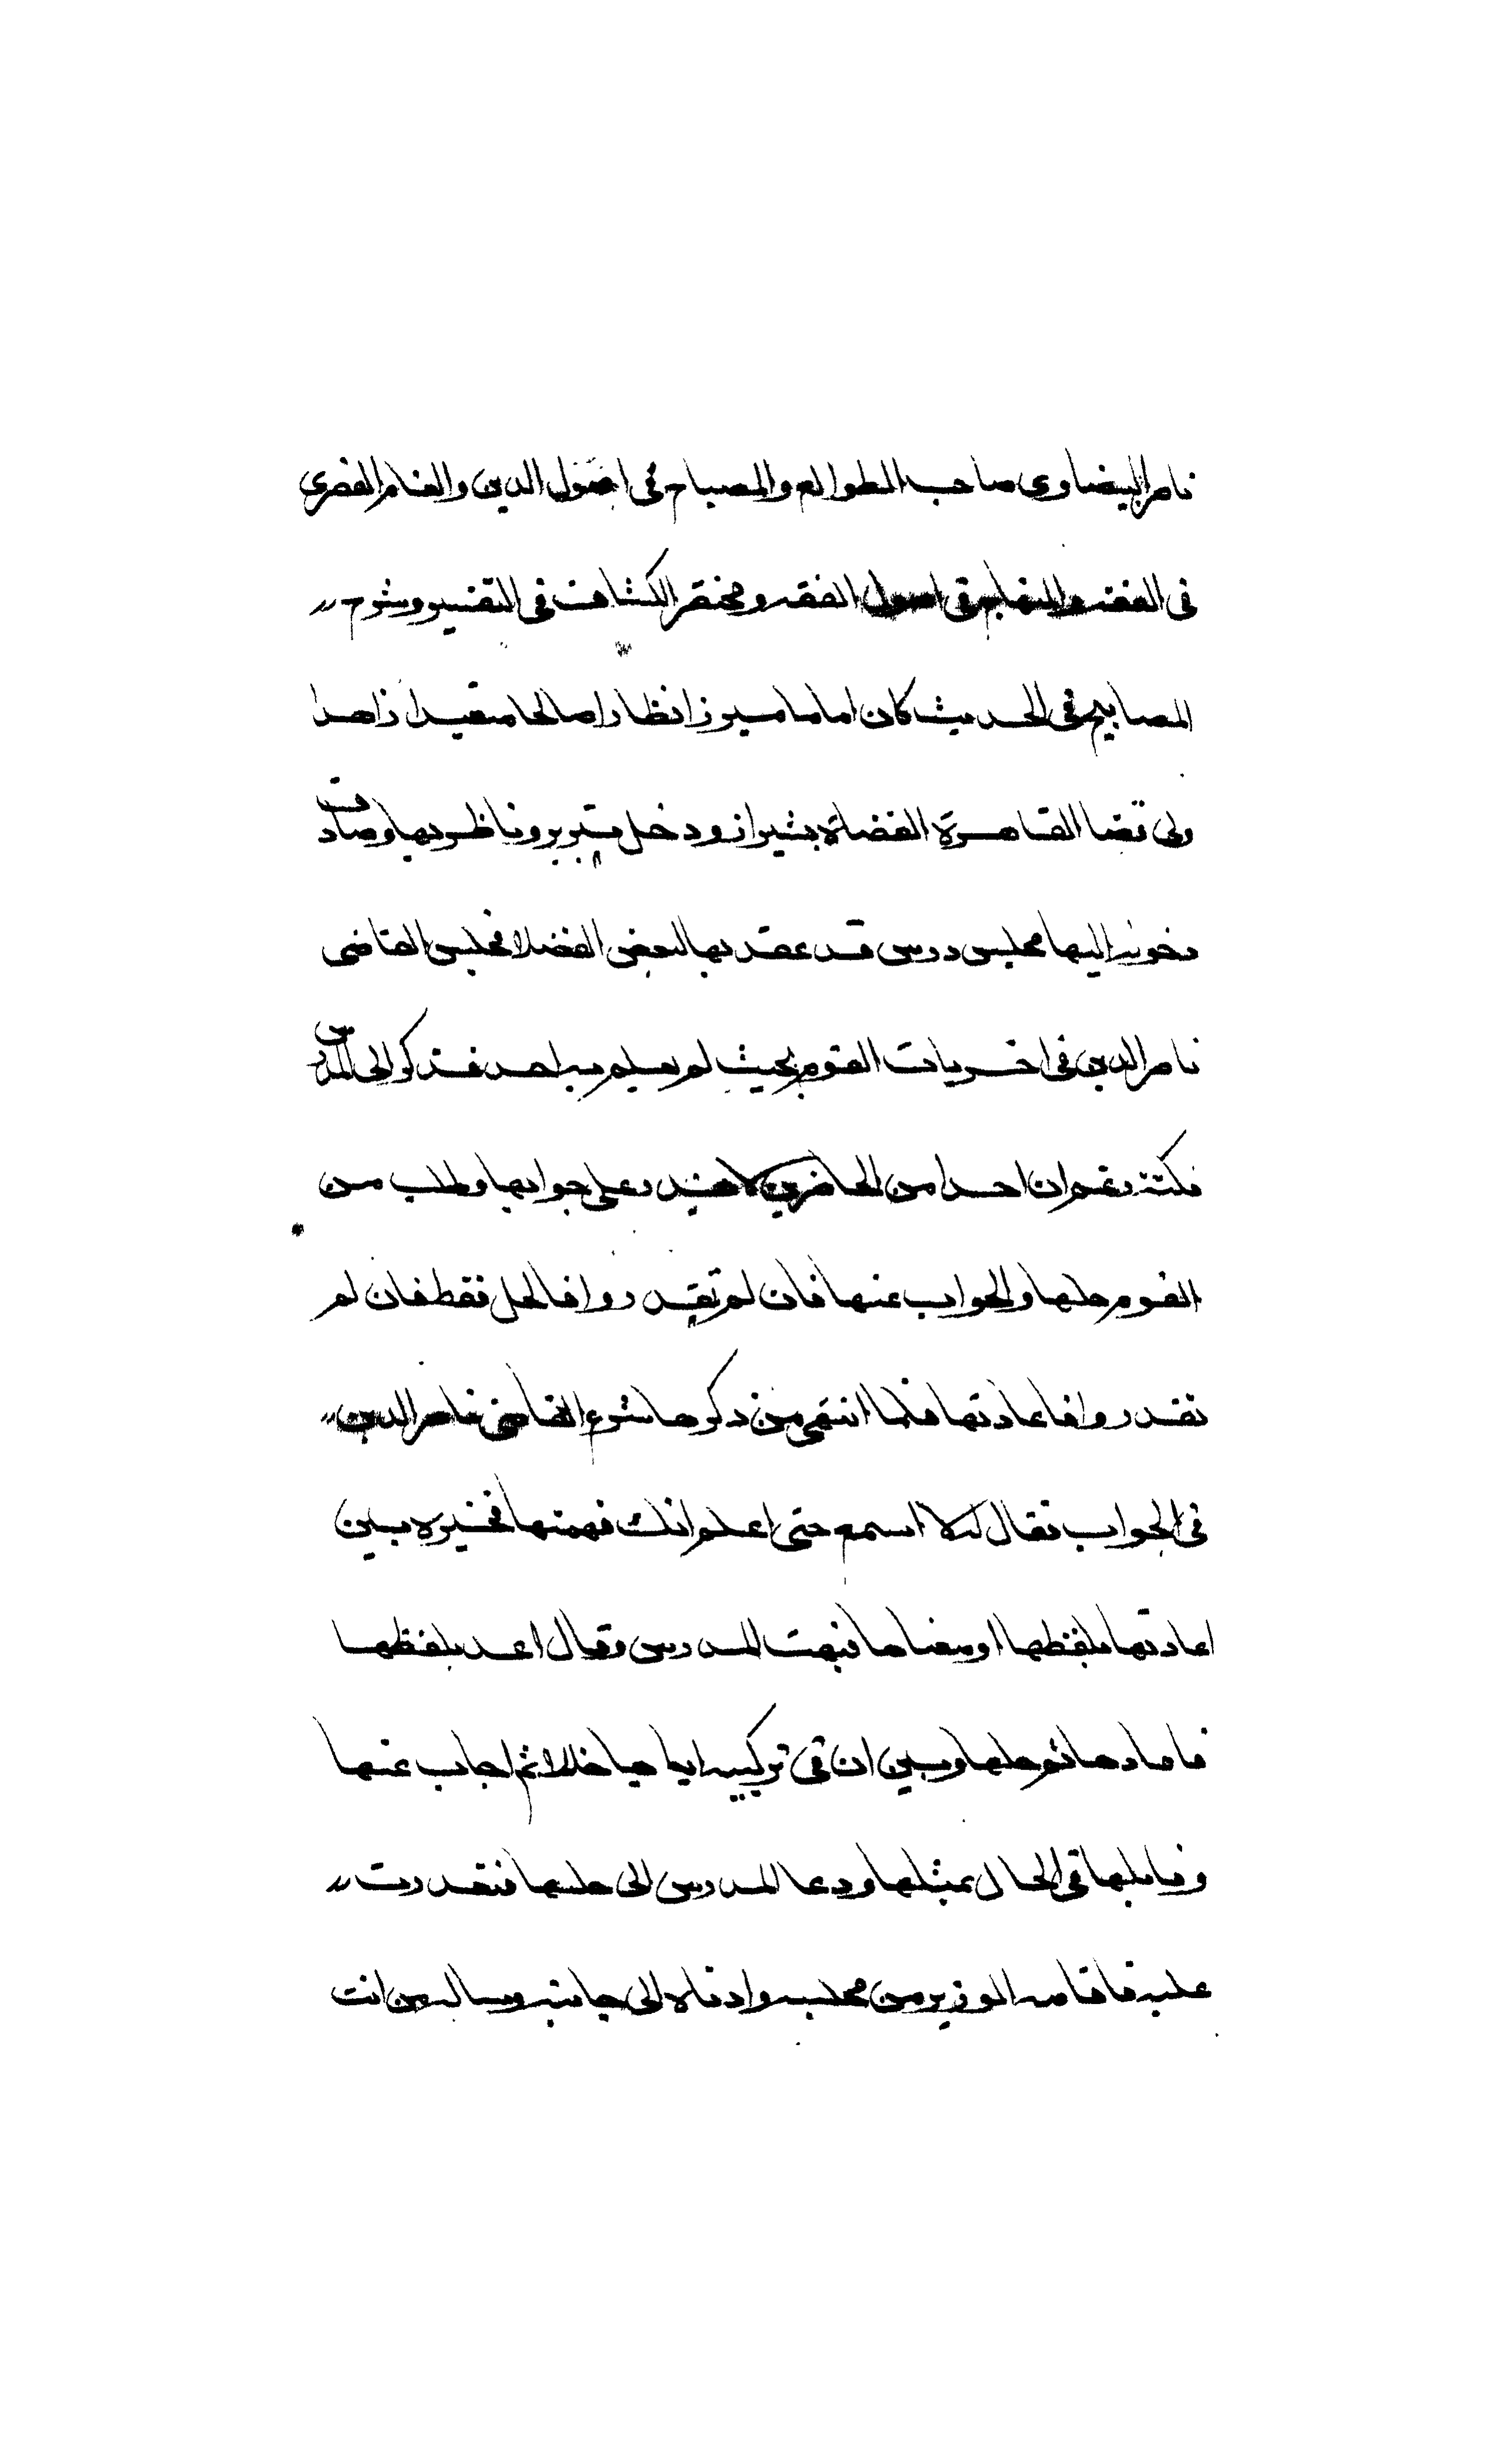 ناصر البيضاوى صاحب الطوالع والمصباح فى اصول الدين والغاية القصرى
فى الفقه والمنهاج فى اصول الفقه ومختصر الكشاف فى التفسير وشرح
المصابيح فى الحديث كان اماما مبرزا نظارا صالحا متعبدا زاهدا
ولى قضا القاهرة القضاة بشيراز ودخل تبريز وناظر بها وصادف
دخوله اليها مجلس درس قد عقد بها لبعض الفضلا فجلس القاضى
ناصر الدين فى اخريات القوم بحيث لم يعلم به احد فذكر الى المدرس
نكتة زعم ان احدا من الحاضرين لا يقدر على جوابها وطلب من
القوم حلها والجواب عنها فان لم تقدروا فالحل فقط فان لم
تقدروا فاعادتها فلما انتهى من ذكرها شرع القاضى ناصر الدين
فى الجواب فقال له لا اسمع حتى اعلم انك فهمتها فخيره بين
اعادتها بلفظها او معناها فبهت المدرس وقال اعد بلفظها
فاعادها ثم حلها وبين ان فى تركيبه اياها خللا ثم اجاب عنها
وقابلها فى الحال بمثلها ودعا المدرس الى حلها فتعذرت
عليه فاقامه الوزير من مجلسه وادناه الى جانبه وساله من انت